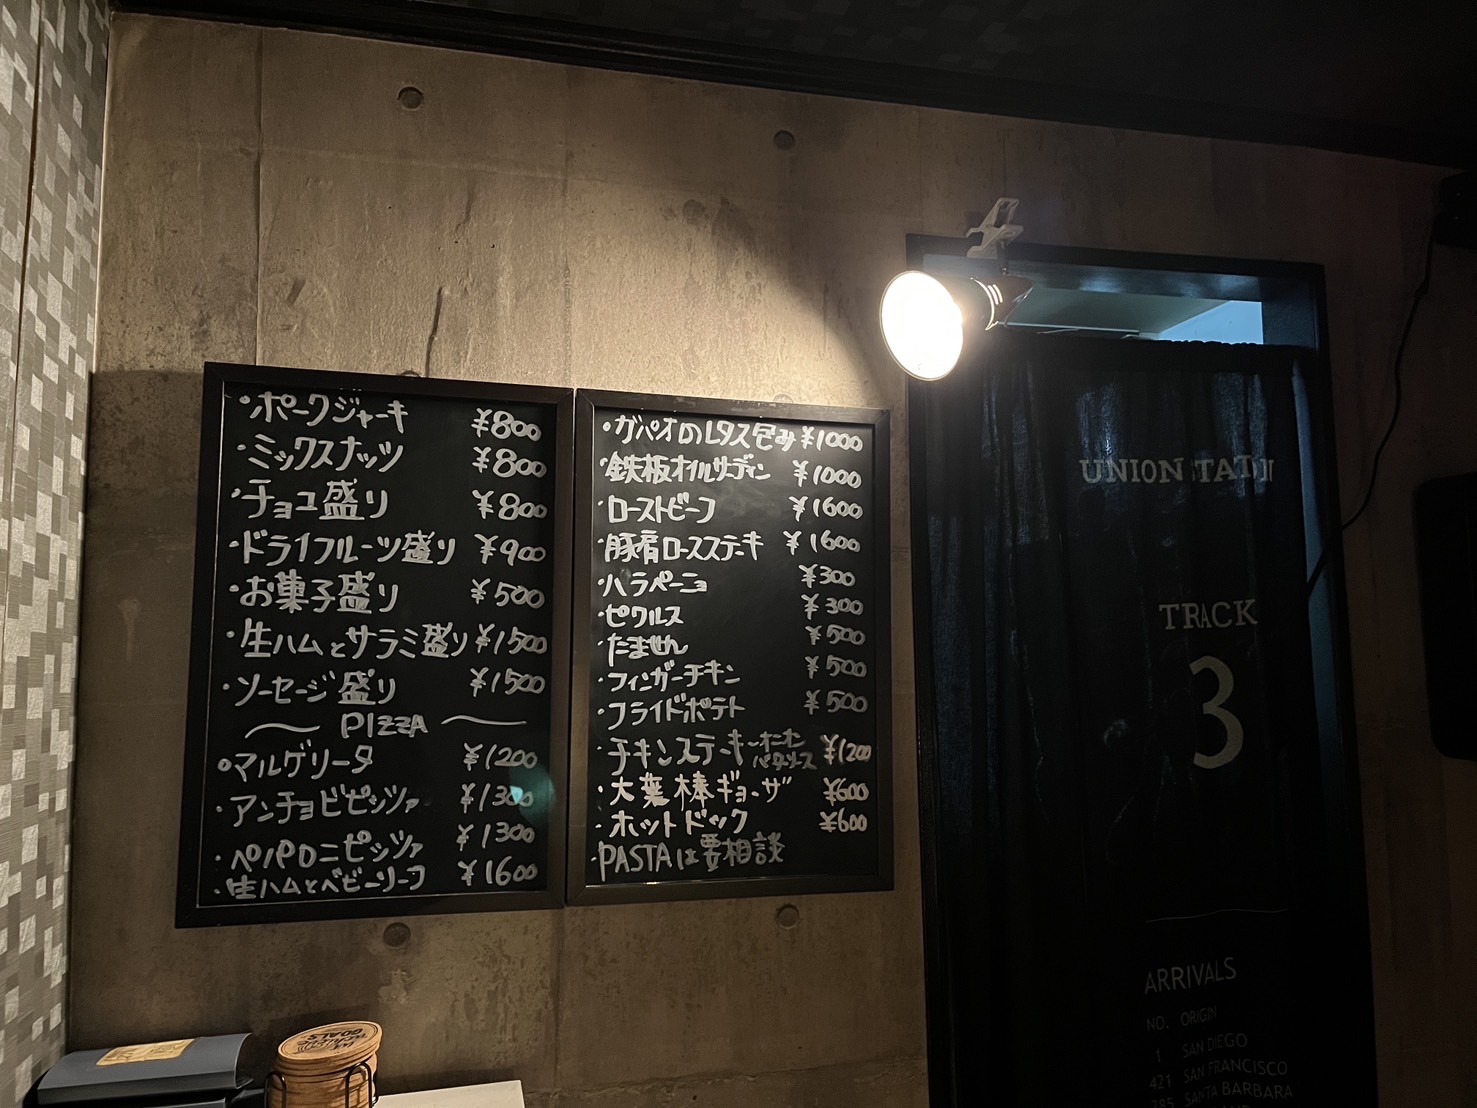 ・ポークジャーキ ¥800
・ミックスナッツ ¥800
・チョコ盛り ¥800
・ドライフルーツ盛り ¥900
・お菓子盛り ¥500
・生ハムとサラミ盛り ¥1500
・ソーセージ盛り ¥1500
〜 PIZZA 〜
・マルゲリータ ¥1200
・アンチョビピッツァ ¥1300
・ペパロニピッツァ ¥1300
・生ハムとベビーリーフ ¥1600
・ガパオのレタス包み ¥1000
・鉄板オイルサーディン ¥1000
・ローストビーフ ¥1600
・豚肩ロースステーキ ¥1600
・ハラペーニョ ¥300
・ピクルス ¥300
・たません ¥500
・フィンガーチキン ¥500
・フライドポテト ¥500
・チキンステーキ ¥1200
・大葉棒ギョーザ ¥600
・ホットドック ¥600
・PASTAは要相談
UNION
TRACK
3
ARRIVALS
NO. ORIGIN
1 SAN DIEGO
421 SAN FRANCISCO
785 SANTA BARBARA
GOALS